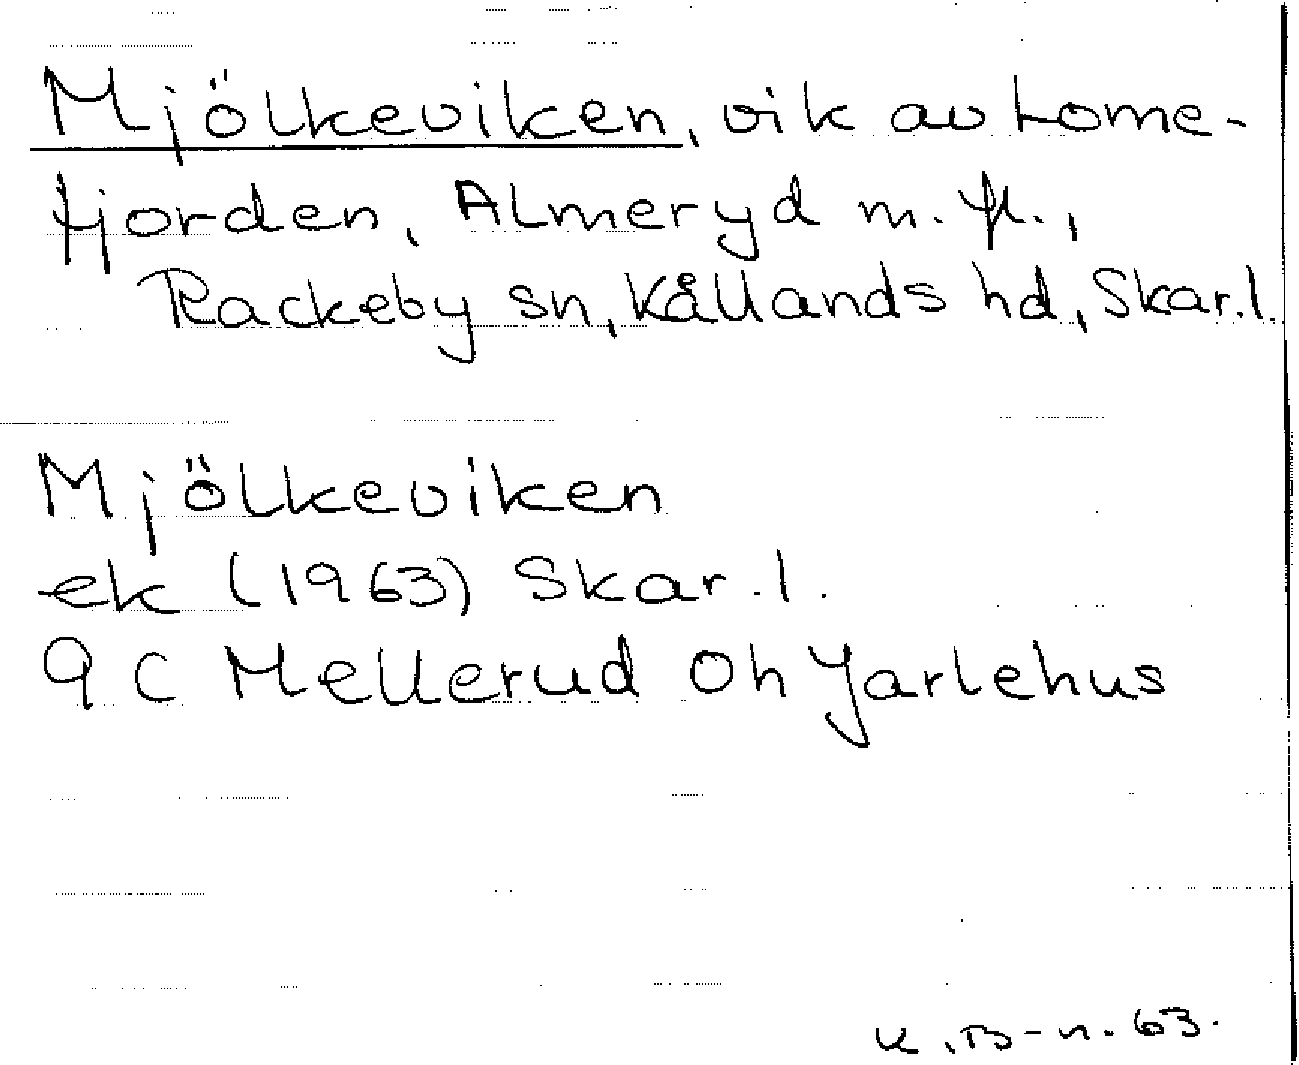 Mjölkeviken, vik av Lome-
fjorden, Almeryd m. fl.,
Rackeby sn, Kållands hd, Skar.l.
Mjölkeviken
ek (1963) Skar.l.
9 C Mellerud Oh Jarlehus
K.B-n. 63.